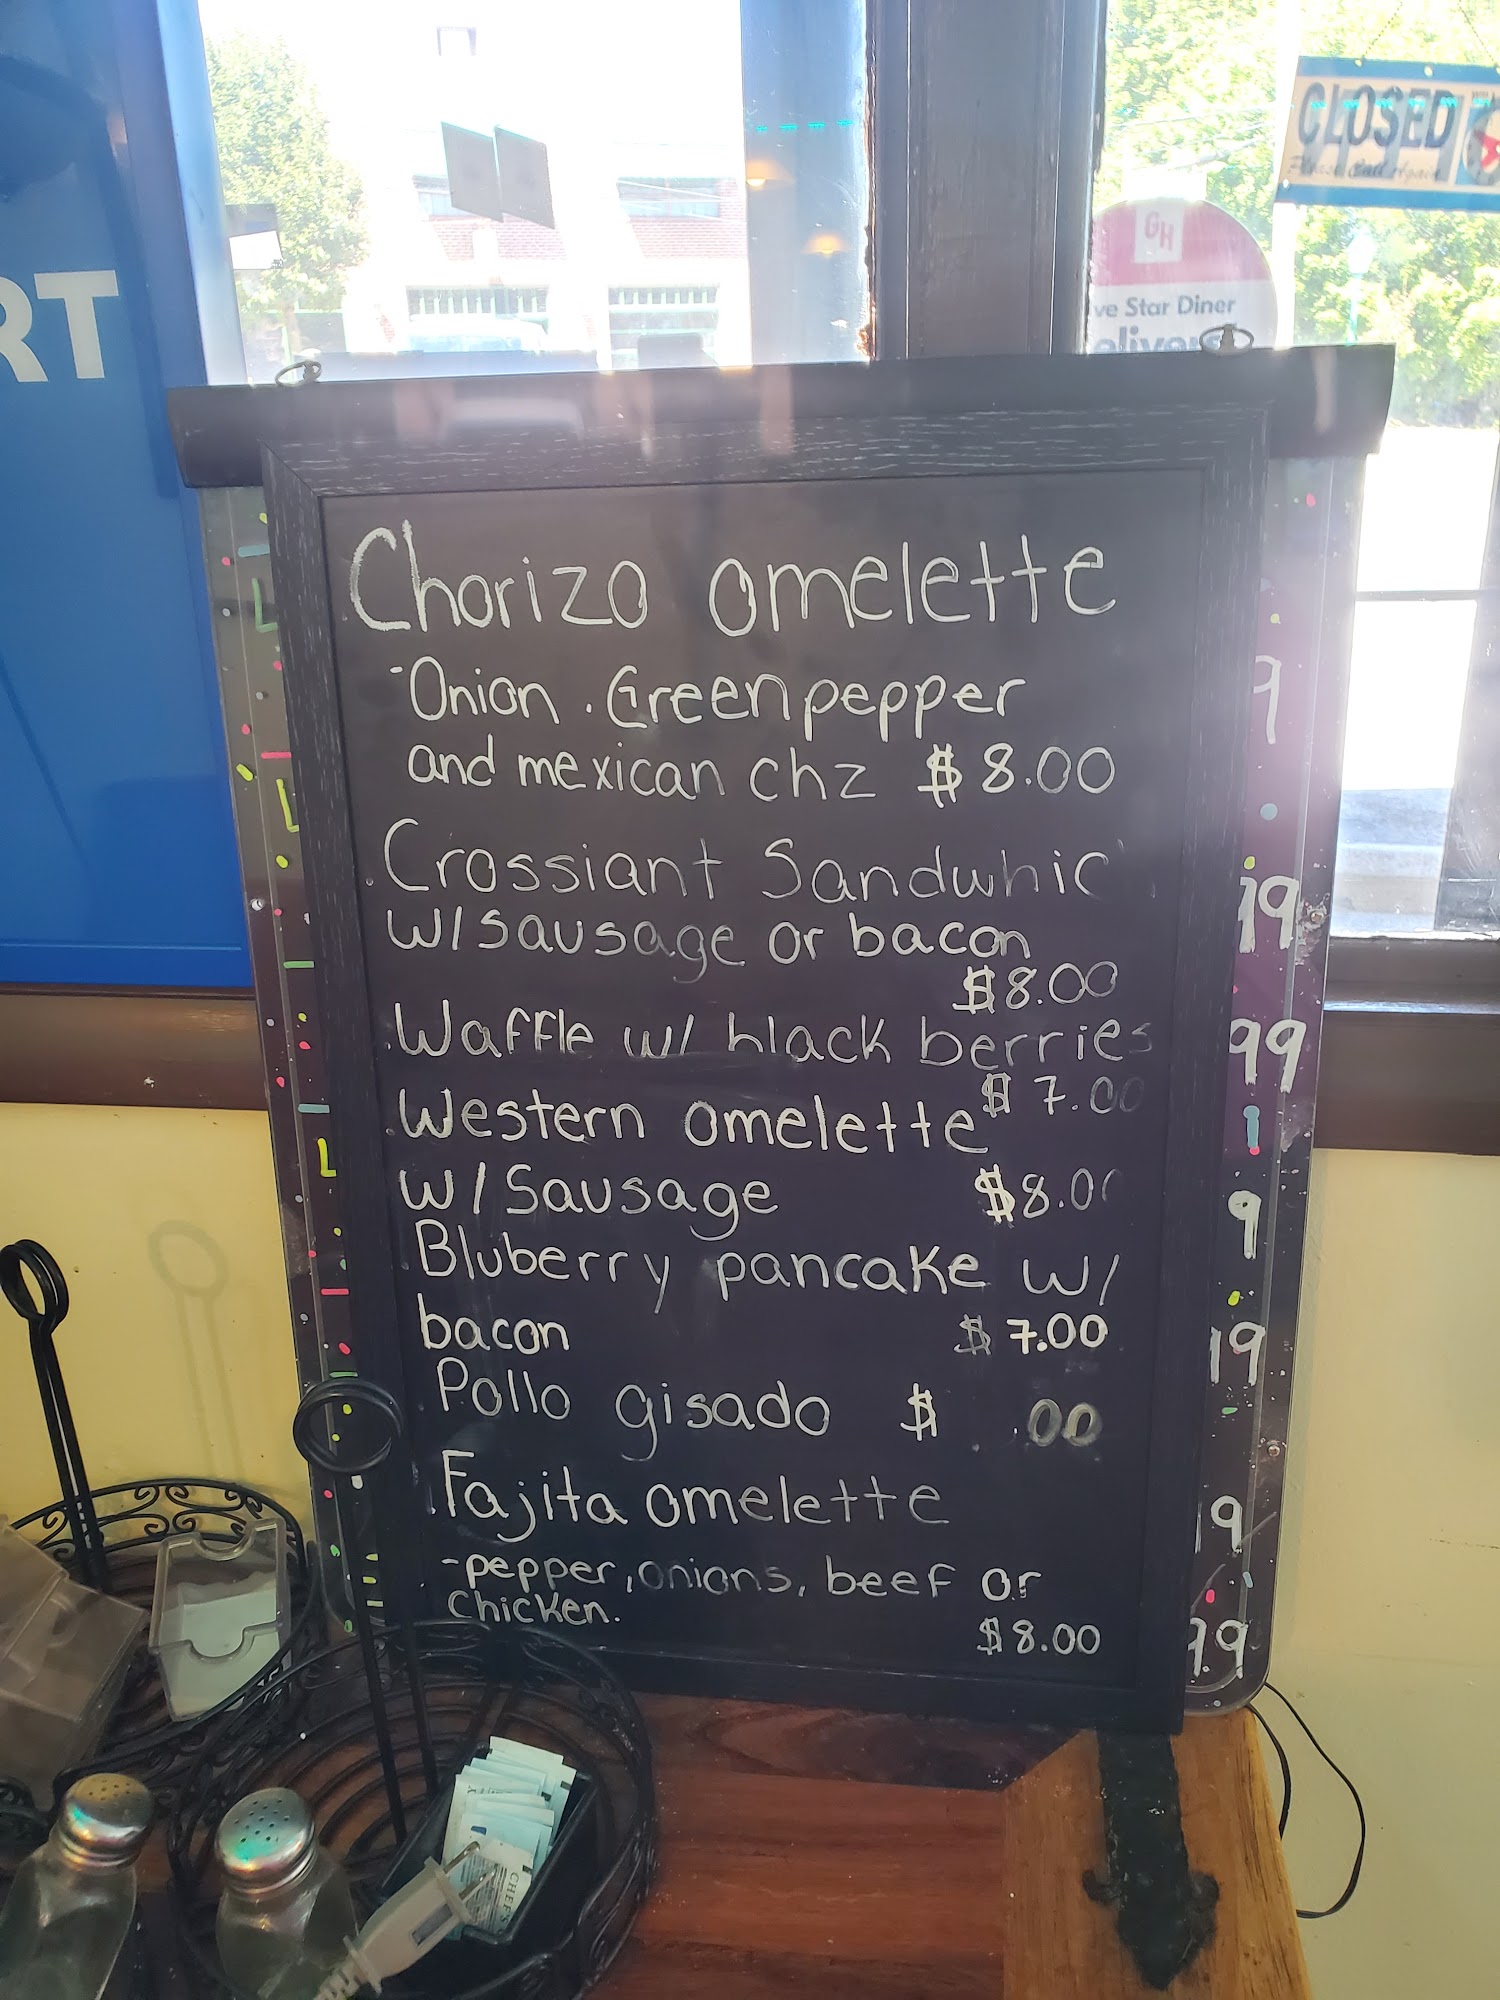 RT
CLOSED
Please Call Again
GH
ve Star Diner
elivers
Chorizo omelette
-Onion . Greenpepper
and mexican chz $8.00
. Crossiant Sandwhic
w/sausage or bacon
$8.00
. Waffle w/ black berries
$7.00
. Western omelette
w/Sausage $8.00
Bluberry pancake w/
bacon $7.00
Pollo gisado $ .00
. Fajita omelette
-pepper, onions, beef or
chicken.
$8.00
9
99
99
9
19
9
99
CHEF'S